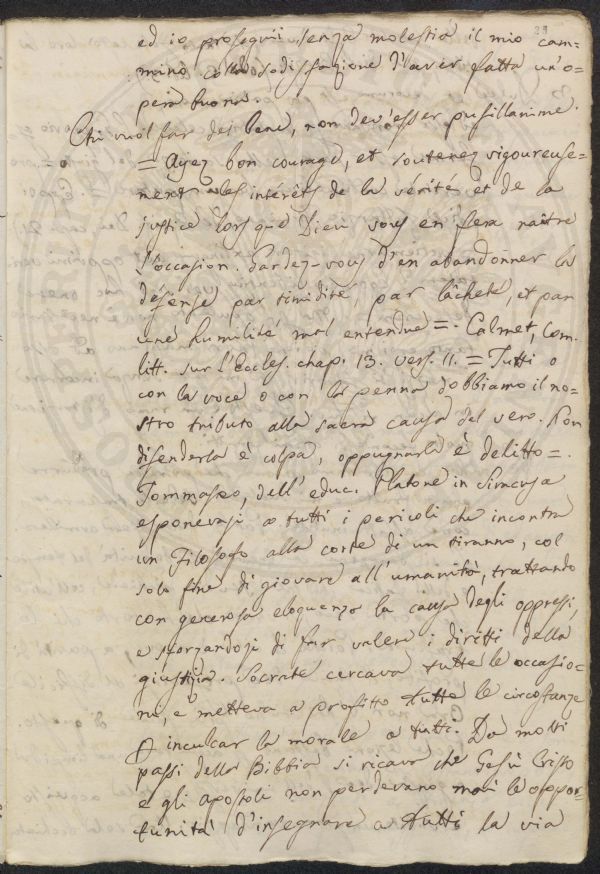 29
ed io proseguii senza molestia il mio cam=
mino colla sodisfazione d'aver fatta un'o=
pera buona.
Chi vuol far del bene, non dev'esser pusillanime.
= Ayez bon courage, et soutenez vigoureuse=
ment les intérêts de la vérité et de la
justice lorsque Dieu vous en fera naître
l'occasion. Gardez-vous d'en abandonner la
défense par timidité, par lâcheté, et par
une humilité mal entendue =. Calmet, Com.
litt. sur l'Eccles. chap. 13. vers. 11. = Tutti o
con la voce o con la penna dobbiamo il no=
stro tributo alla sacra causa del vero. Non
difenderla è colpa, oppugnarla è delitto =.
Tommaseo, dell'educ. Platone in Siracusa
esponevasi a tutti i pericoli che incontra
un Filosofo alla corte di un tiranno, col
solo fine di giovare all'umanità, trattando
con generosa eloquenza la causa degli oppressi,
e sforzandosi di far valere i diritti della
giustizia. Socrate cercava tutte le occasio=
ni, e metteva a profitto tutte le circostanze
p inculcar la morale a tutti. Da molti
passi della Bibbia si ricava che Gesù Cristo
e gli apostoli non perdevano mai le oppor=
tunità d'insegnare a tutti la via